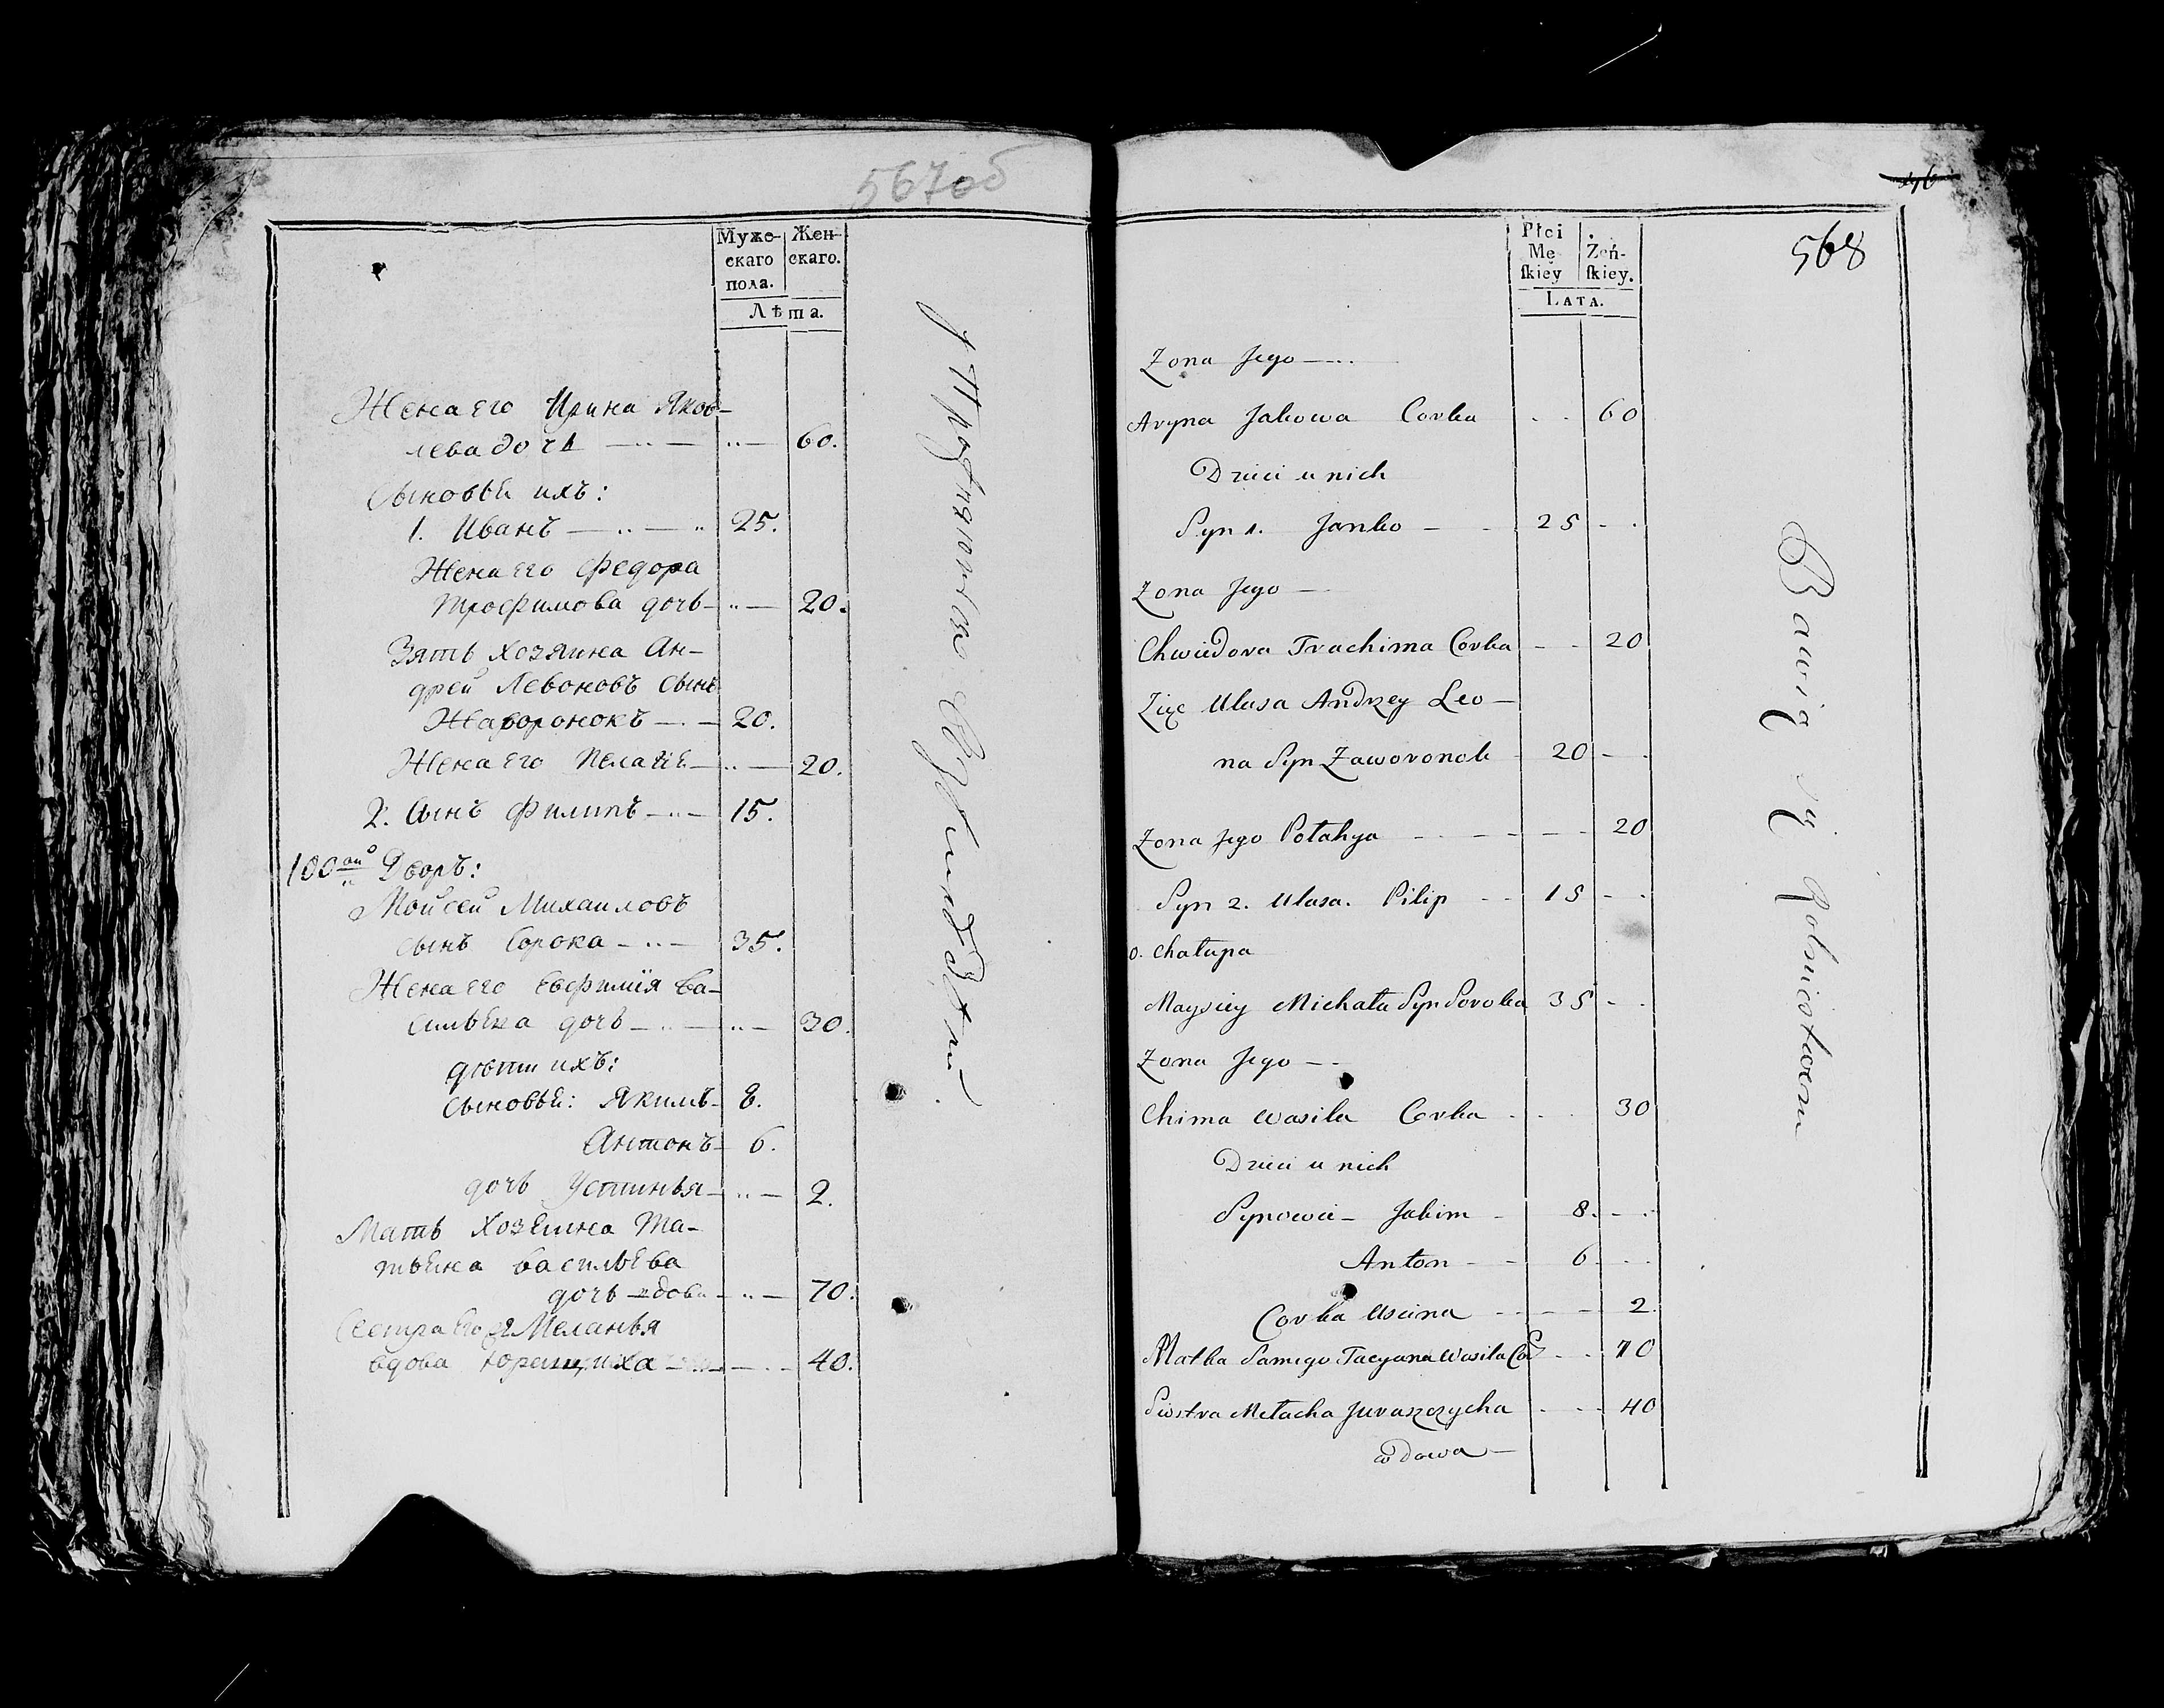 567об
Муже-
скаго
пола.
Жен-
скаго.
Лѣта.
Жена его Ирина Яков-
лева дочь 60.
Сыновья ихъ:
1. Иванъ 25.
Жена его Федора
Трофимова дочь 20.
Зять хозяина Ан-
дрей Левоновъ сынъ
Жаворонокъ 20.
Жена его Пелагѣя 20.
2. Сынъ Филипъ 15.
100ой Дворъ:
Мойсей Михаиловъ
сынъ Сорока 35.
Жена его Евфимія Ва-
сильева дочь 30.
дѣти ихъ:
сыновья: Якимъ 8.
Антонъ 6.
дочь Устинья 2.
Мать Хозяина Та-
тьяна васильева
дочь вдова 70.
Сестра его Меланья
вдова Юращиха 40.
46
568
Płci
Mę
ſkiey
Żeń-
ſkiey.
LATA.
Zona Jego
Aryna Jakowa Corka 60
Dzieci u nich
Syn 1. Janko 25
Zona Jego
Chwiedora Trachima Corka 20
Zięc Ulasa Andrzey Leo-
na Syn Zaworonok 20
Zona Jego Połahya 20
Syn 2. Ulasa. Pilip 15
0. Chałupa
Maysiey Michała Syn Soroka 35
Zona Jego
Chima Wasila Corka 30
Dzieci u nich
Synowie Jakim 8.
Anton 6
Corka Uscina 2.
Matka Samego Tacyana Wasila Co 70
Siostra Mełacha Juraszczycha 40
wdowa
Bawią się Rolnictwem